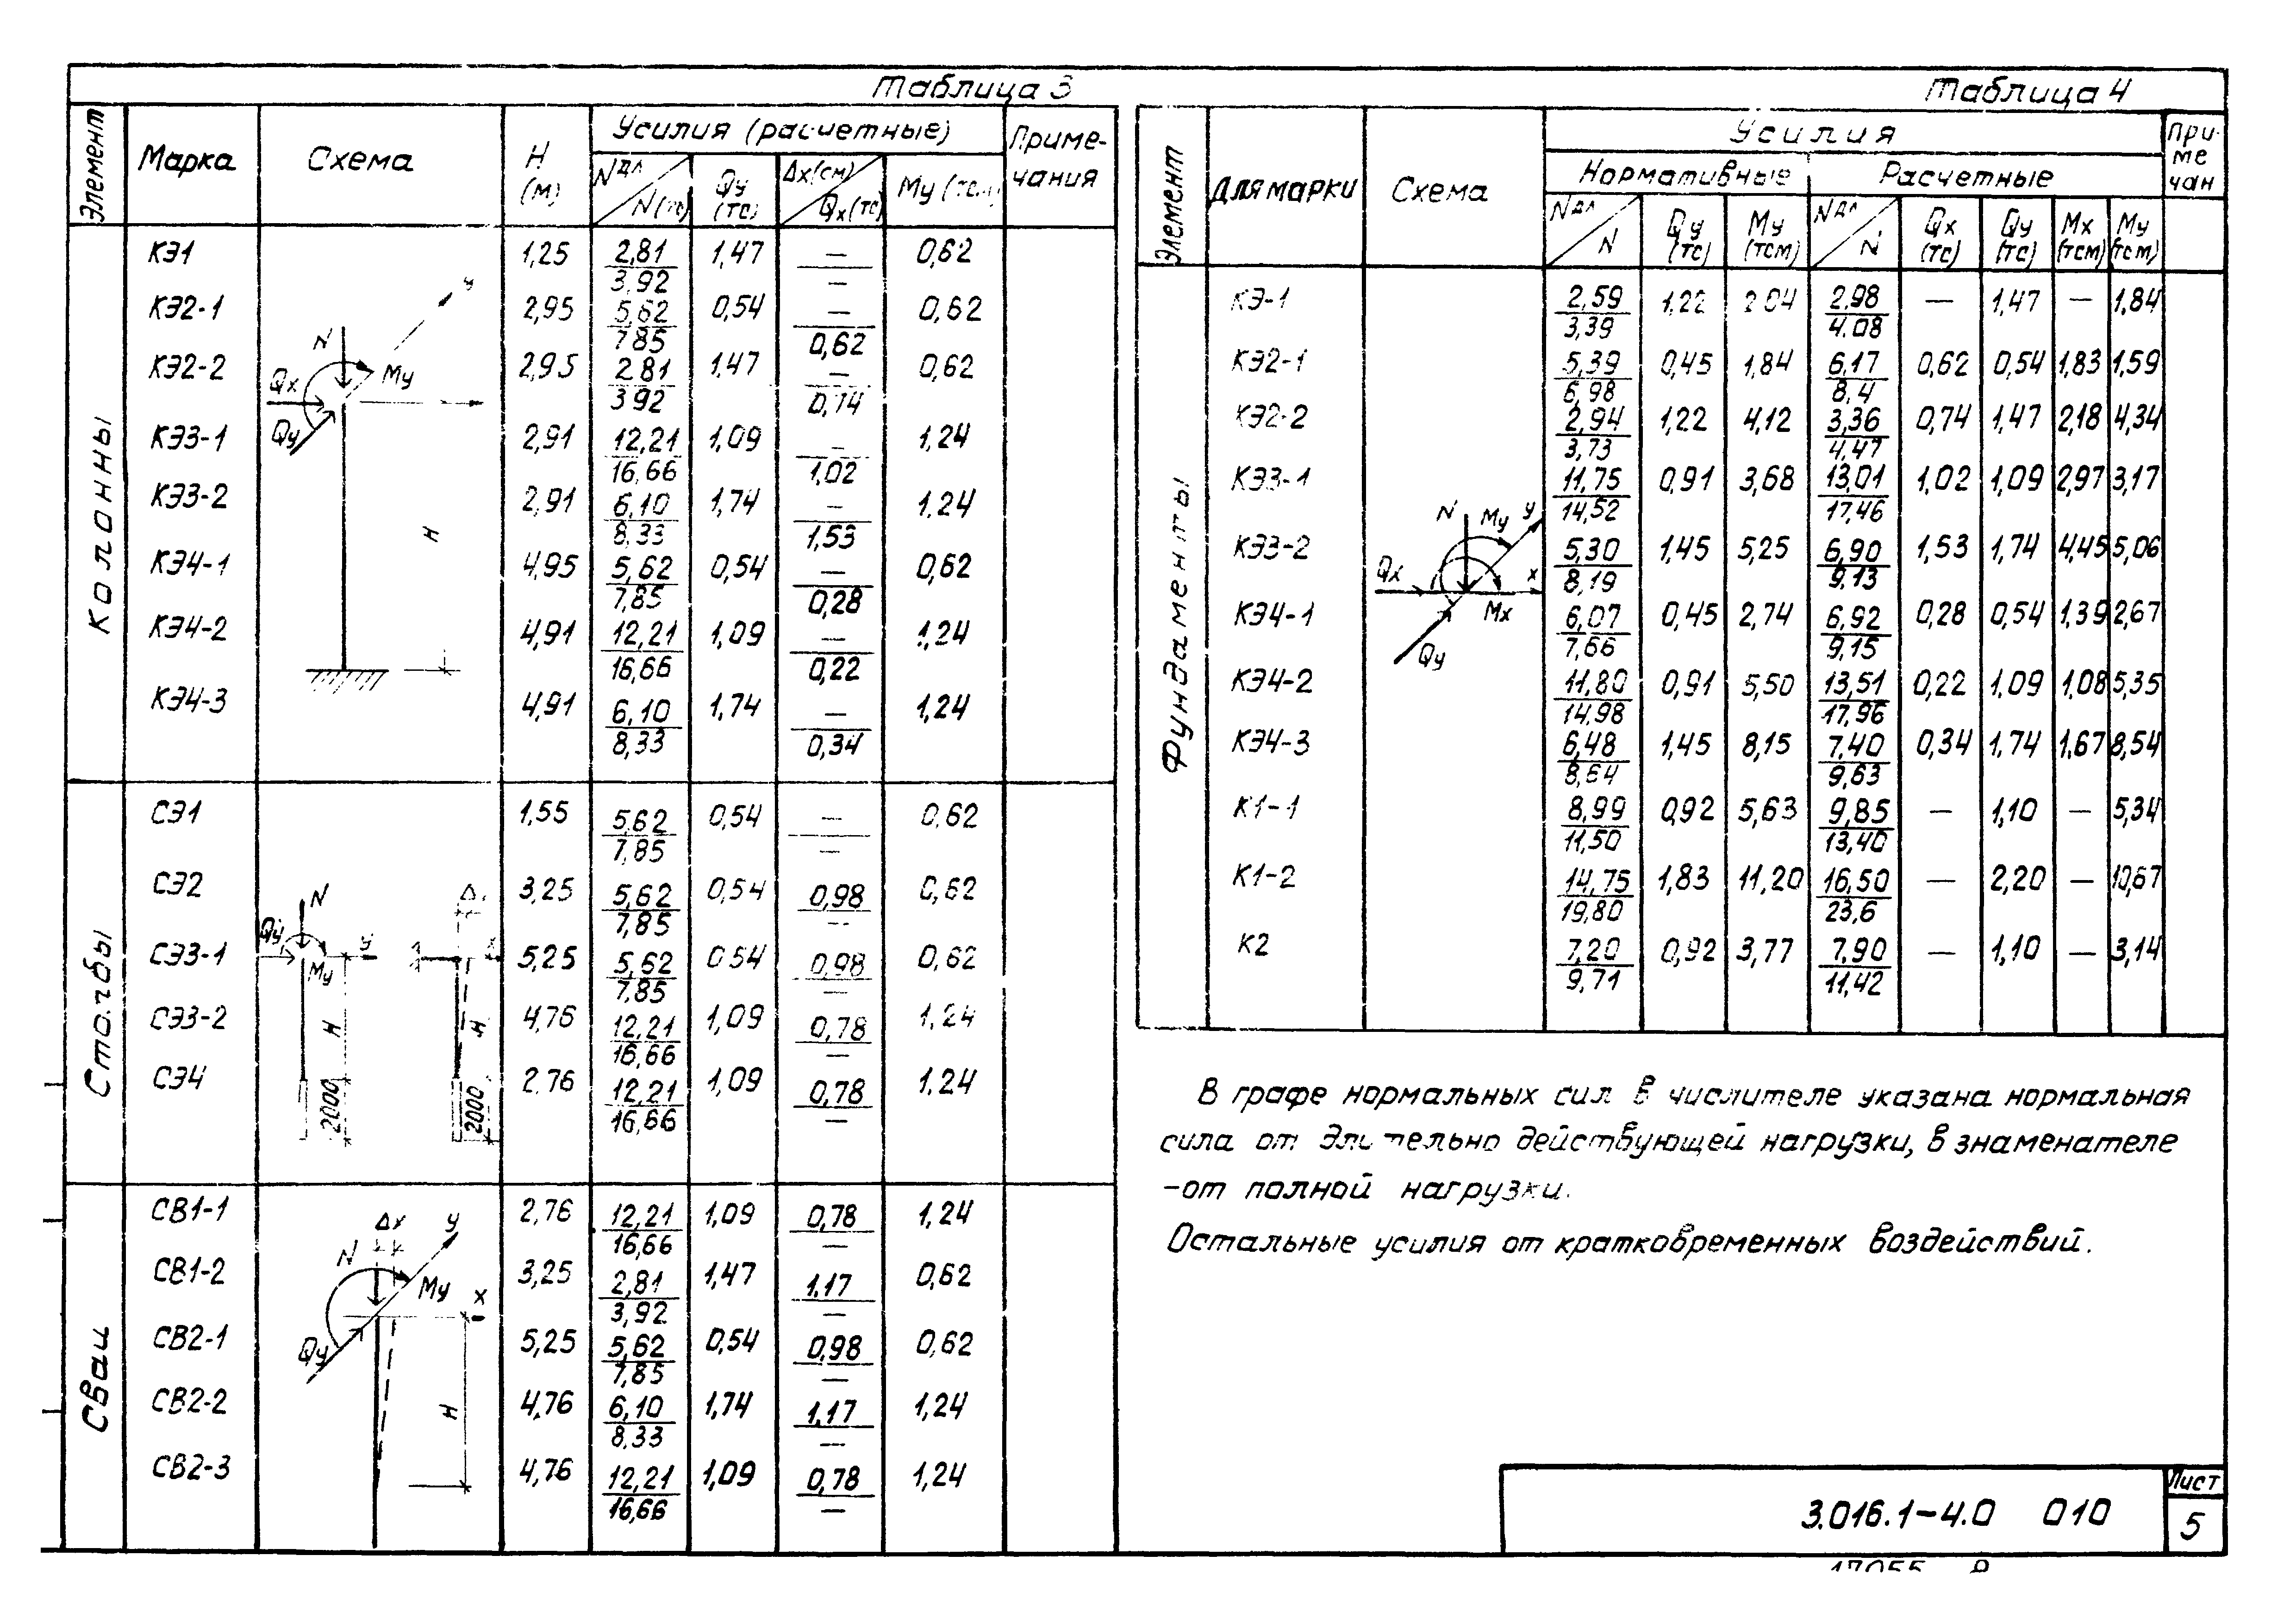 Таблица 3
Элемент Марка Схема H (м) Усилия (расчетные) Примечания
Nдл/N(тс) Qy (тс) Δx(см)/Qx(тс) My (тсм)
Колонны
КЭ1 1,25 2,81/3,92 1,47 —/— 0,62
КЭ2-1 2,95 5,62/7,85 0,54 —/0,62 0,62
КЭ2-2 2,95 2,81/3,92 1,47 —/0,74 0,62
КЭ3-1 2,91 12,21/16,66 1,09 —/1,02 1,24
КЭ3-2 2,91 6,10/8,33 1,74 —/1,53 1,24
КЭ4-1 4,95 5,62/7,85 0,54 —/0,28 0,62
КЭ4-2 4,91 12,21/16,66 1,09 —/0,22 1,24
КЭ4-3 4,91 6,10/8,33 1,74 —/0,34 1,24
y
N
Qx My
Qy
H
Столбы
СЭ1 1,55 5,62/7,85 0,54 —/— 0,62
СЭ2 3,25 5,62/7,85 0,54 0,98/— 0,62
СЭ3-1 5,25 5,62/7,85 0,54 0,98/— 0,62
СЭ3-2 4,76 12,21/16,66 1,09 0,78/— 1,24
СЭ4 2,76 12,21/16,66 1,09 0,78/— 1,24
N
Qy y
My
H H
2000 2000
Сваи
СВ1-1 2,76 12,21/16,66 1,09 0,78/— 1,24
СВ1-2 3,25 2,81/3,92 1,47 1,17/— 0,62
СВ2-1 5,25 5,62/7,85 0,54 0,98/— 0,62
СВ2-2 4,76 6,10/8,33 1,74 1,17/— 1,24
СВ2-3 4,76 12,21/16,66 1,09 0,78/— 1,24
Δx y
N
My x
Qy
H
Таблица 4
Элемент Для марки Схема Усилия Примечан
Нормативные Расчетные
Nдл/N Qy (тс) My (тсм) Nдл/N Qx (тс) Qy (тс) Mx (тсм) My (тсм)
Фундаменты
КЭ-1 2,59/3,39 1,22 2,04 2,98/4,08 — 1,47 — 1,84
КЭ2-1 5,39/6,98 0,45 1,84 6,17/8,4 0,62 0,54 1,83 1,59
КЭ2-2 2,94/3,73 1,22 4,12 3,36/4,47 0,74 1,47 2,18 4,34
КЭ3-1 11,75/14,52 0,91 3,68 13,01/17,46 1,02 1,09 2,97 3,17
КЭ3-2 5,30/8,19 1,45 5,25 6,90/9,13 1,53 1,74 4,45 5,06
КЭ4-1 6,07/7,66 0,45 2,74 6,92/9,15 0,28 0,54 1,39 2,67
КЭ4-2 11,80/14,98 0,91 5,50 13,51/17,96 0,22 1,09 1,08 5,35
КЭ4-3 6,48/8,64 1,45 8,15 7,40/9,63 0,34 1,74 1,67 8,54
К1-1 8,99/11,50 0,92 5,63 9,85/13,40 — 1,10 — 5,34
К1-2 14,75/19,80 1,83 11,20 16,50/23,6 — 2,20 — 10,67
К2 7,20/9,71 0,92 3,77 7,90/11,42 — 1,10 — 3,14
N My y
Qx x
Mx
Qy
В графе нормальных сил в числителе указана нормальная
сила от длительно действующей нагрузки, в знаменателе
-от полной нагрузки.
Остальные усилия от кратковременных воздействий.
3.016.1-4.0 010
Лист
5